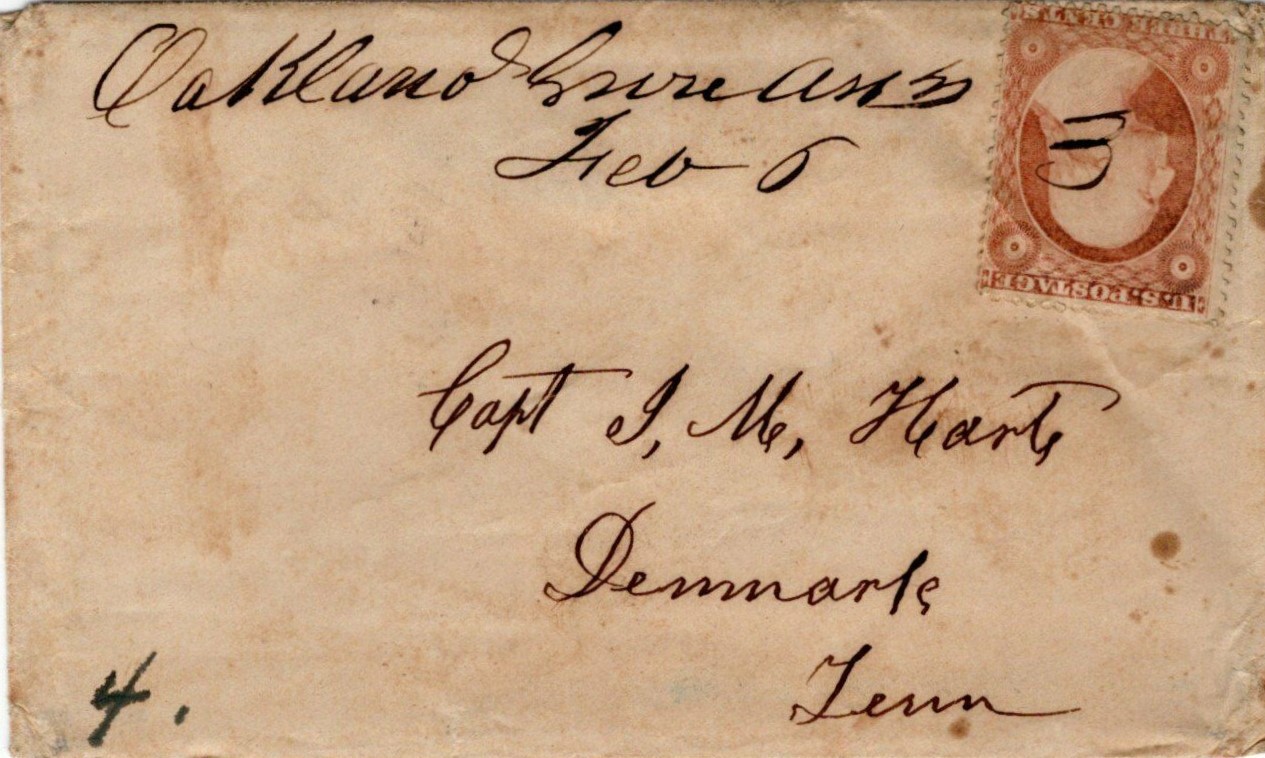 Oakland
Feb 6
THREE CENTS
3
U.S. POSTAGE
Capt J, M, Harts
Denmark
Tenn
4.